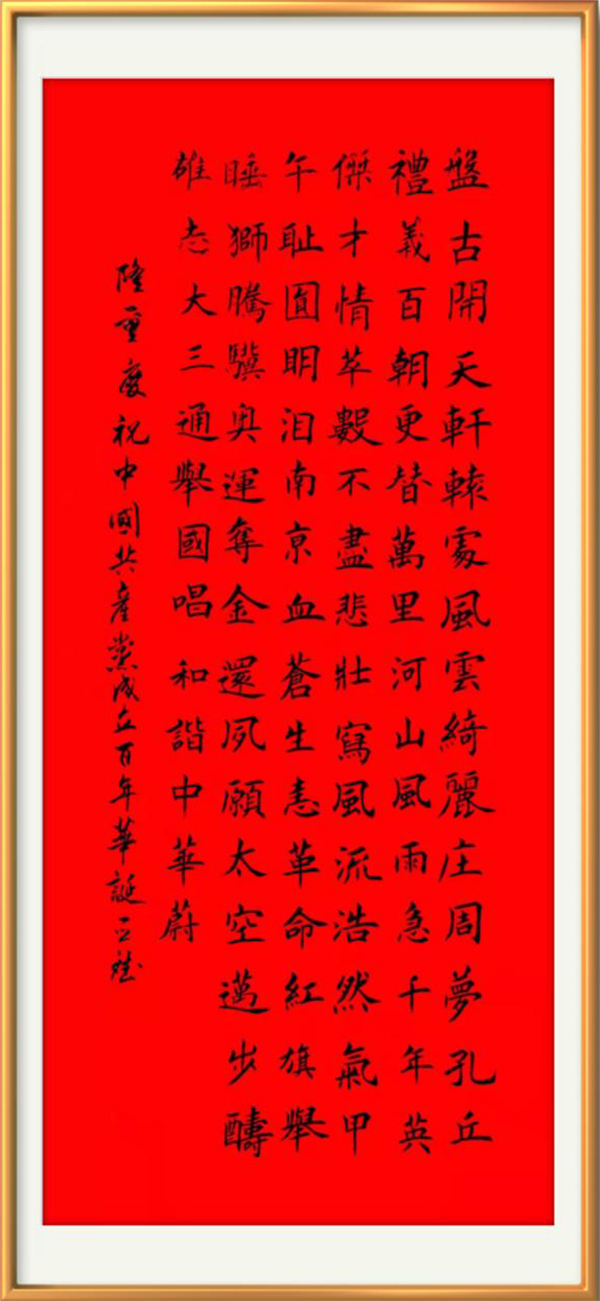 盤古開天軒轅處風雲綺麗庄周夢孔丘
禮義百朝更替萬里河山風雨急千年英
傑才情萃數不盡悲壯寫風流浩然氣甲
午恥圓明泪南京血蒼生恚革命紅旗舉
睡獅騰驥奧運奪金還夙願太空邁步醻
雄志大三通舉國唱和諧中華蔚
隆重慶祝中國共產黨成立百年華誕